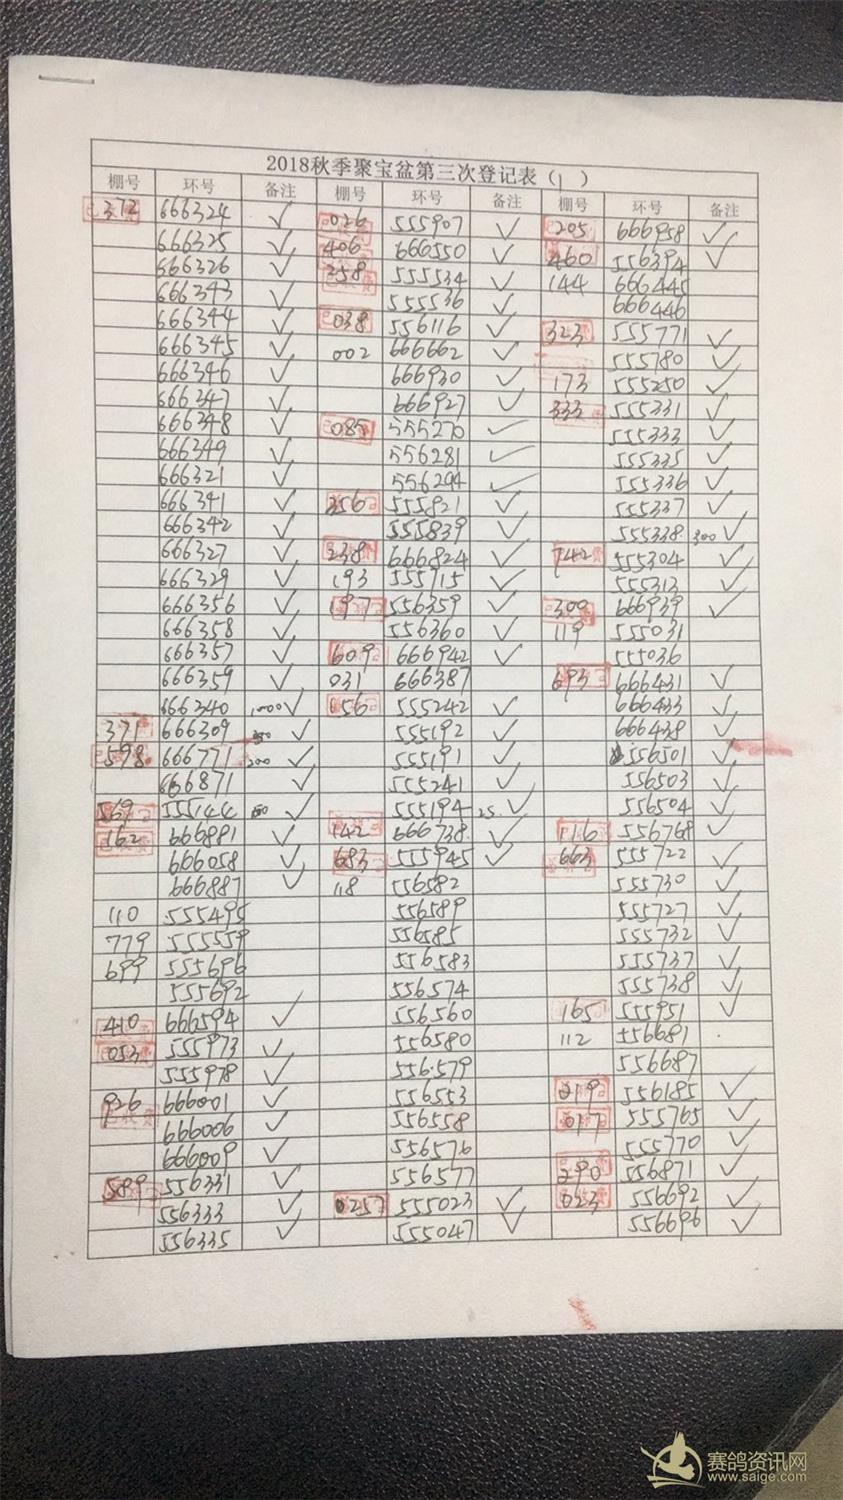 2018秋季聚宝盆第三次登记表（1）
棚号 环号 备注 棚号 环号 备注 棚号 环号 备注
372 666324 ✓ 026 555907 ✓ 205 666958 ✓
666325 ✓ 406 666550 ✓ 460 556394 ✓
666326 ✓ 258 555534 ✓ 144 666445
666343 ✓ 555536 ✓ 666446
666344 ✓ 038 556116 ✓ 323 555771 ✓
666345 ✓ 002 666662 ✓ 555780 ✓
666346 ✓ 666930 ✓ 173 555250 ✓
666347 ✓ 666927 ✓ 333 555331 ✓
666348 ✓ 085 555270 ✓ 555333 ✓
666349 ✓ 556281 ✓ 555335 ✓
666321 ✓ 556294 ✓ 555336 ✓
666341 ✓ 356 555821 ✓ 555337 ✓
666342 ✓ 555839 ✓ 555338 300 ✓
666327 ✓ 238 666824 ✓ 742 555304 ✓
666329 ✓ 193 555715 ✓ 555313 ✓
666356 ✓ 197 556359 ✓ 309 666939 ✓
666358 ✓ 556360 ✓ 119 555031
666357 ✓ 609 666942 ✓ 555036
666359 ✓ 031 666387 693 666431 ✓
666340 1000 ✓ 056 555242 ✓ 666433 ✓
371 666309 ✓ 555192 ✓ 666438 ✓
598 666777 200 ✓ 555191 ✓ 556501 ✓
666871 ✓ 555241 ✓ 556503 ✓
569 555144 ✓ 555194 25 ✓ 556504 ✓
162 666881 ✓ 142 666738 ✓ 116 556768 ✓
666058 ✓ 683 555945 ✓ 663 555722 ✓
666887 ✓ 118 556582 555730 ✓
110 555495 556589 555727 ✓
779 555559 556585 555732 ✓
699 555696 556583 555737 ✓
555692 556574 555738 ✓
410 666594 ✓ 556560 165 555951 ✓
053 555973 ✓ 556580 112 556681
555978 ✓ 556579 556687
926 666001 ✓ 556553 219 556185 ✓
666006 ✓ 556558 017 555765 ✓
666009 ✓ 556576 555770 ✓
589 556331 ✓ 556577 290 556871 ✓
556333 ✓ 0257 555023 ✓ 023 556692 ✓
556335 ✓ 555047 ✓ 556696 ✓
赛鸽资讯网
www.saige.com